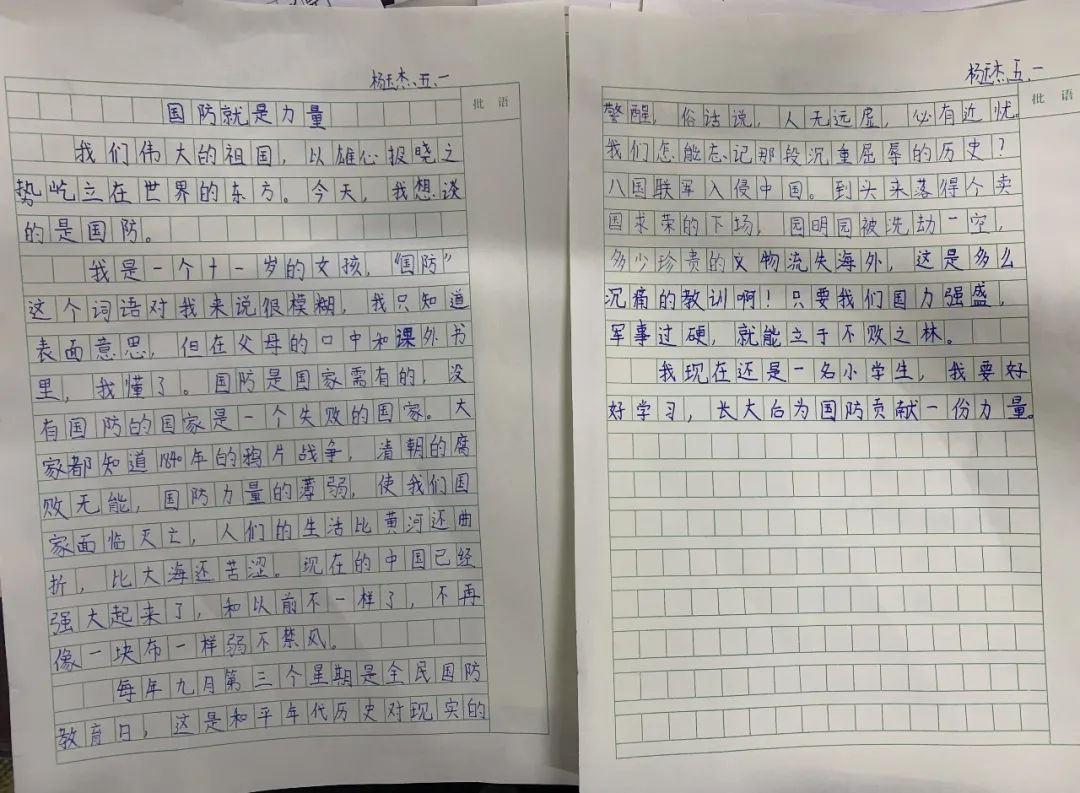 杨玉杰、五、一
批 语
国防就是力量
我们伟大的祖国，以雄心报晓之
势屹立在世界的东方。今天，我想谈
的是国防。
我是一个十一岁的女孩，“国防”
这个词语对我来说很模糊，我只知道
表面意思，但在父母的口中和课外书
里，我懂了。国防是国家需有的，没
有国防的国家是一个失败的国家。大
家都知道1840年的鸦片战争，清朝的腐
败无能，国防力量的薄弱，使我们国
家面临灭亡，人们的生活比黄河还曲
折，比大海还苦涩。现在的中国已经
强大起来了，和以前不一样了，不再
像一块布一样弱不禁风。
每年九月第三个星期是全民国防
教育日，这是和平年代历史对现实的
杨玉杰、五、一
批 语
警醒，俗话说，人无远虑，必有近忧。
我们怎能忘记那段沉重屈辱的历史？
八国联军入侵中国。到头来落得个卖
国求荣的下场，园明园被洗劫一空，
多少珍贵的文物流失海外，这是多么
沉痛的教训啊！只要我们国力强盛，
军事过硬，就能立于不败之林。
我现在还是一名小学生，我要好
好学习，长大后为国防贡献一份力量。